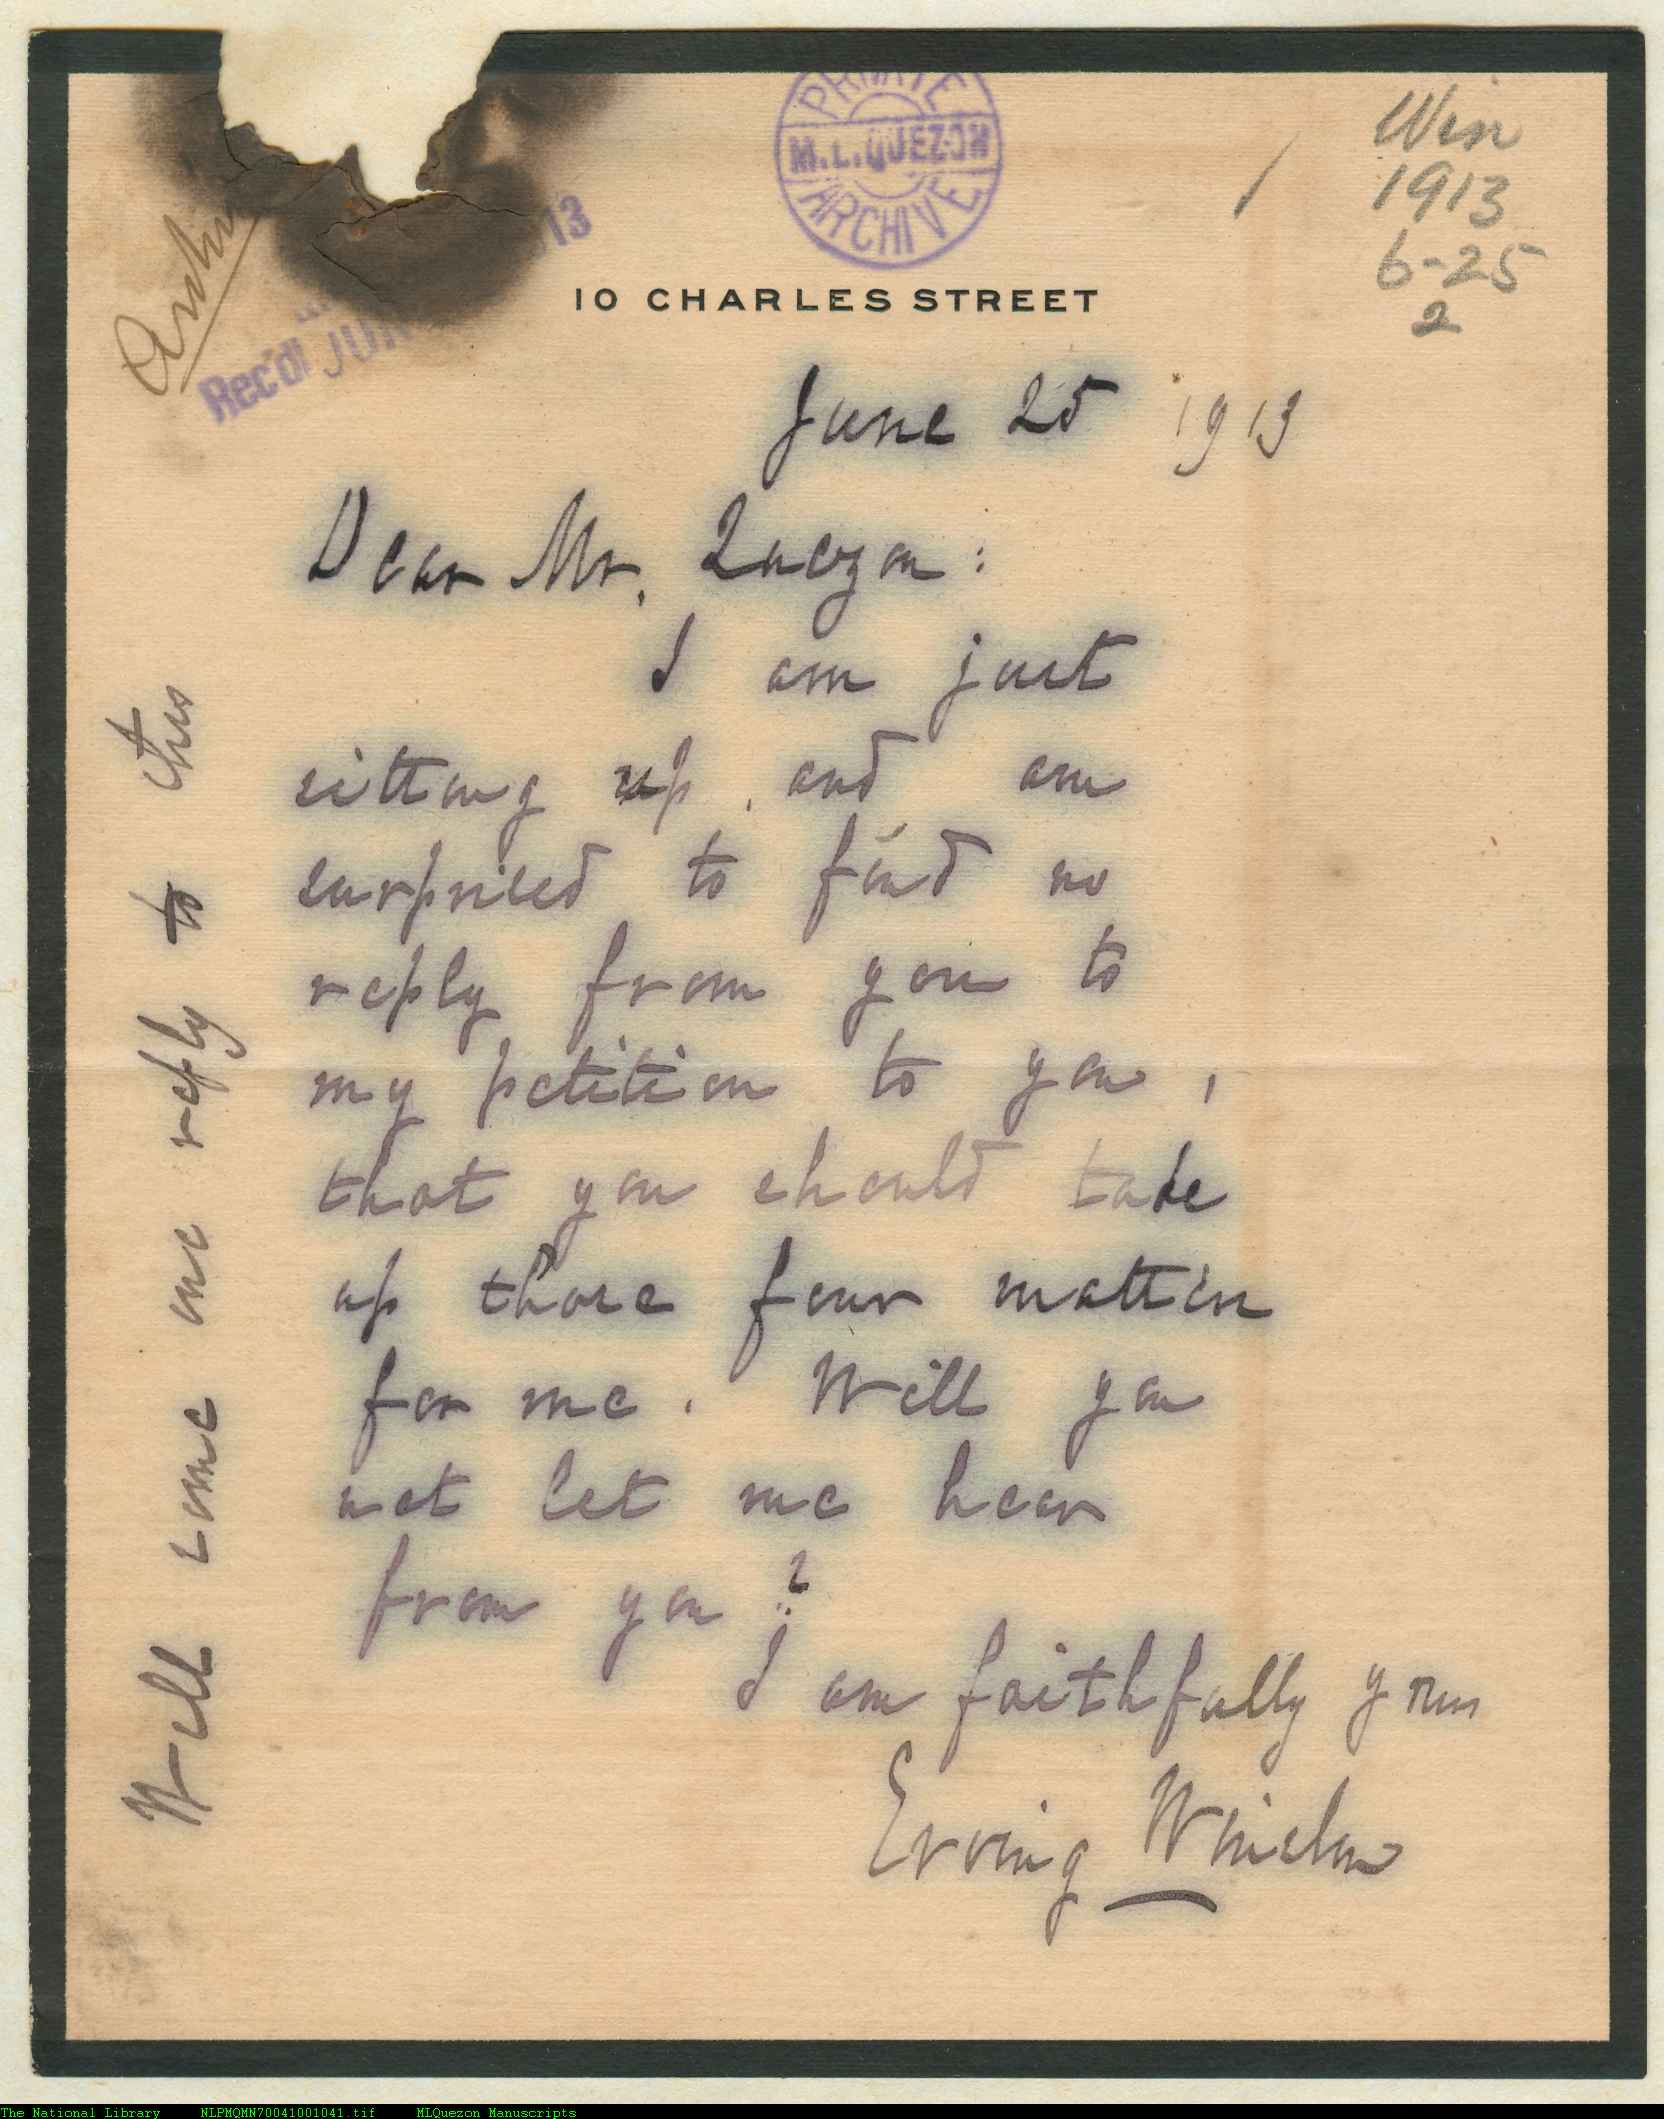 PRIVATE
M.L. QUEZON
ARCHIVE
Win
1913
6-25
2
Rec'd JUN 13
10 CHARLES STREET
June 25 1913
Dear Mr. Quezon:
I am just
sitting up, and am
surprised to find no
reply from you to
my petition to you,
that you should take
up those four matters
for me. Will you
not let me hear
from you?
I am faithfully yours
Erving Winslow
Will some one reply to this
The National Library NLPMQMN70041001041.tif MLQuezon Manuscripts